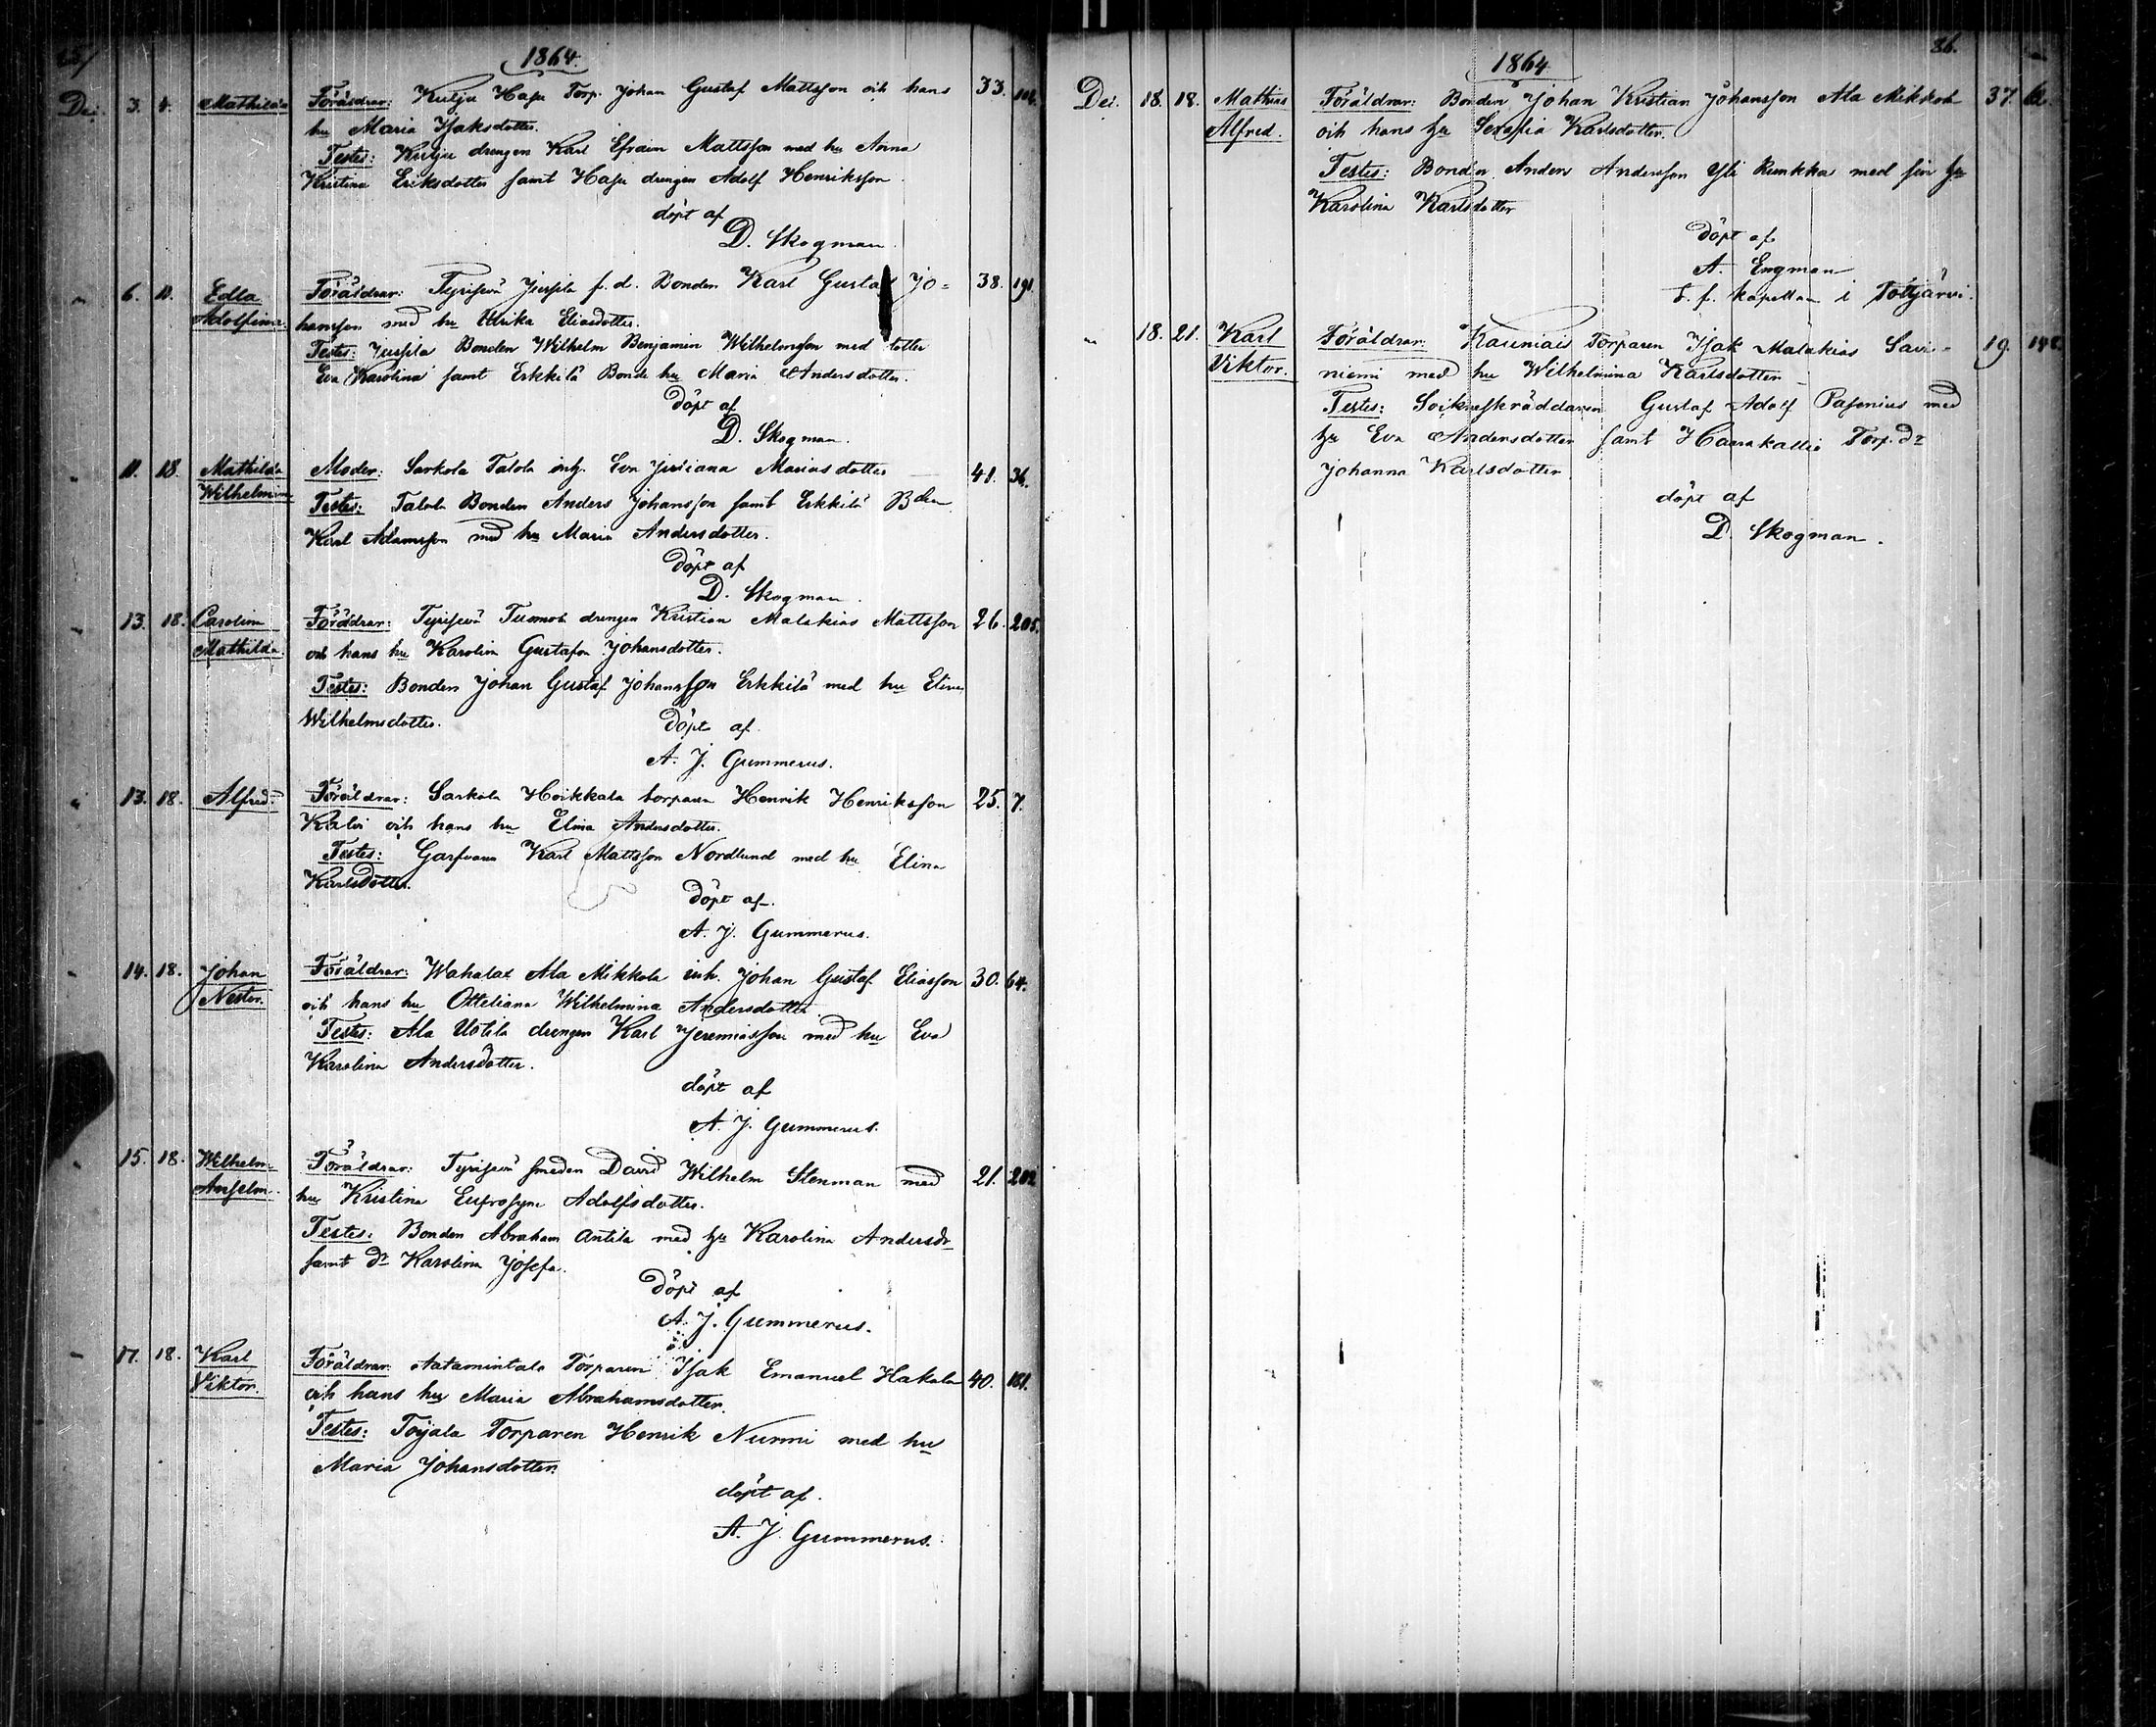 1864.
Dec. 3. 4. Mathilda Föräldrar: Kulju Haju Torp. Johan Gustaf Mattsson och hans 33.
hu Maria Isaksdotter.
Testes: Kulju drengen Karl Efraim Mattsson med hu Anna
Kristina Eriksdotter samt Haju drengen Adolf Henriksson.
döpt af
D. Skogman.
6. 11. Edla Föräldrar: Jussila f. d. Bonden Karl Gustaf Jo= 38. 191.
Adolfina. hansson med hu Ulrika Eliasdotter.
Testes: Jussila Bonden Wilhelm Benjamin Wilhelmsson med dotter
Eva Karolina samt Erkkilä Bonde hu Maria Andersdotter.
Döpt af
D. Skogman.
11. 18. Mathilda Moder: Sarkola Talola inh. Eva Juliana Mariasdotter 41. 36.
Wilhelmina Testes: Talola Bonden Anders Johansson samt Erkkilä Bden
Karl Adamsson med hu Maria Andersdotter.
Döpt af
D. Skogman.
13. 18. Carolina Föräldrar: Tuomola drengen Kristian Malakias Mattsson 26. 205.
Mathilda. och hans hu Karolina Gustafva Johansdotter.
Testes: Bonden Johan Gustaf Johansson Erkkilä med hu Elina
Wilhelmsdotter.
Döpt af
A. J. Gummerus.
13. 18. Alfred. Föräldrar: Sarkola Hoikkala torparen Henrik Henriksson 25. 7.
och hans hu Elina Andersdotter.
Testes: Garfvaren Karl Mattsson Nordlund med hu Elina
Karlsdotter.
Döpt af
A. J. Gummerus.
14. 18. Johan Föräldrar: Wahalax Ala Mikkola inh. Johan Gustaf Eliasson 30. 64.
Nestor. och hans hu Otteliana Wilhelmina Andersdotter.
Testes: Ala Uotila drengen Karl Jeremiasson med hu Eva
Karolina Andersdotter.
döpt af
A. J. Gummerus.
15. 18. Wilhelm Föräldrar: smeden David Wilhelm Stenman med 21. 202.
Anselm. hu Kristina Eufrosyne Adolfsdotter.
Testes: Bonden Abraham Antila med hu Karolina Andersdr
samt dr Karolina Josefa.
Döpt af
A. J. Gummerus.
17. 18. Karl Föräldrar: Aatamintalo Torparen Isak Emanuel Hakala 40. 181.
Viktor. och hans hu Maria Abrahamsdotter.
Testes: Toijala Torparen Henrik Nurmi med hu
Maria Johansdotter.
döpt af.
A. J. Gummerus.
86.
1864
Dec. 18. 18. Mathias Föräldrar: Bonden Johan Kristian Johansson Ala Mikkola 37. 62.
Alfred. och hans hu Serafia Karlsdotter.
Testes: Bonden Anders Andersson Yli Runkka med sin hu
Karolina Karlsdotter
Döpt af
A. Engman
T. f. kapellan i Tottijärvi.
18. 21. Karl Föräldrar: Kauniais Torparen Isak Malakias Savi- 19.
Viktor. niemi med hu Wilhelmina Karlsdotter
Testes: Sockneskräddaren Gustaf Adolf Pasenius med
hu Eva Andersdotter samt Haarakallio Torp. dr
Johanna Karlsdotter.
döpt af
D. Skogman.